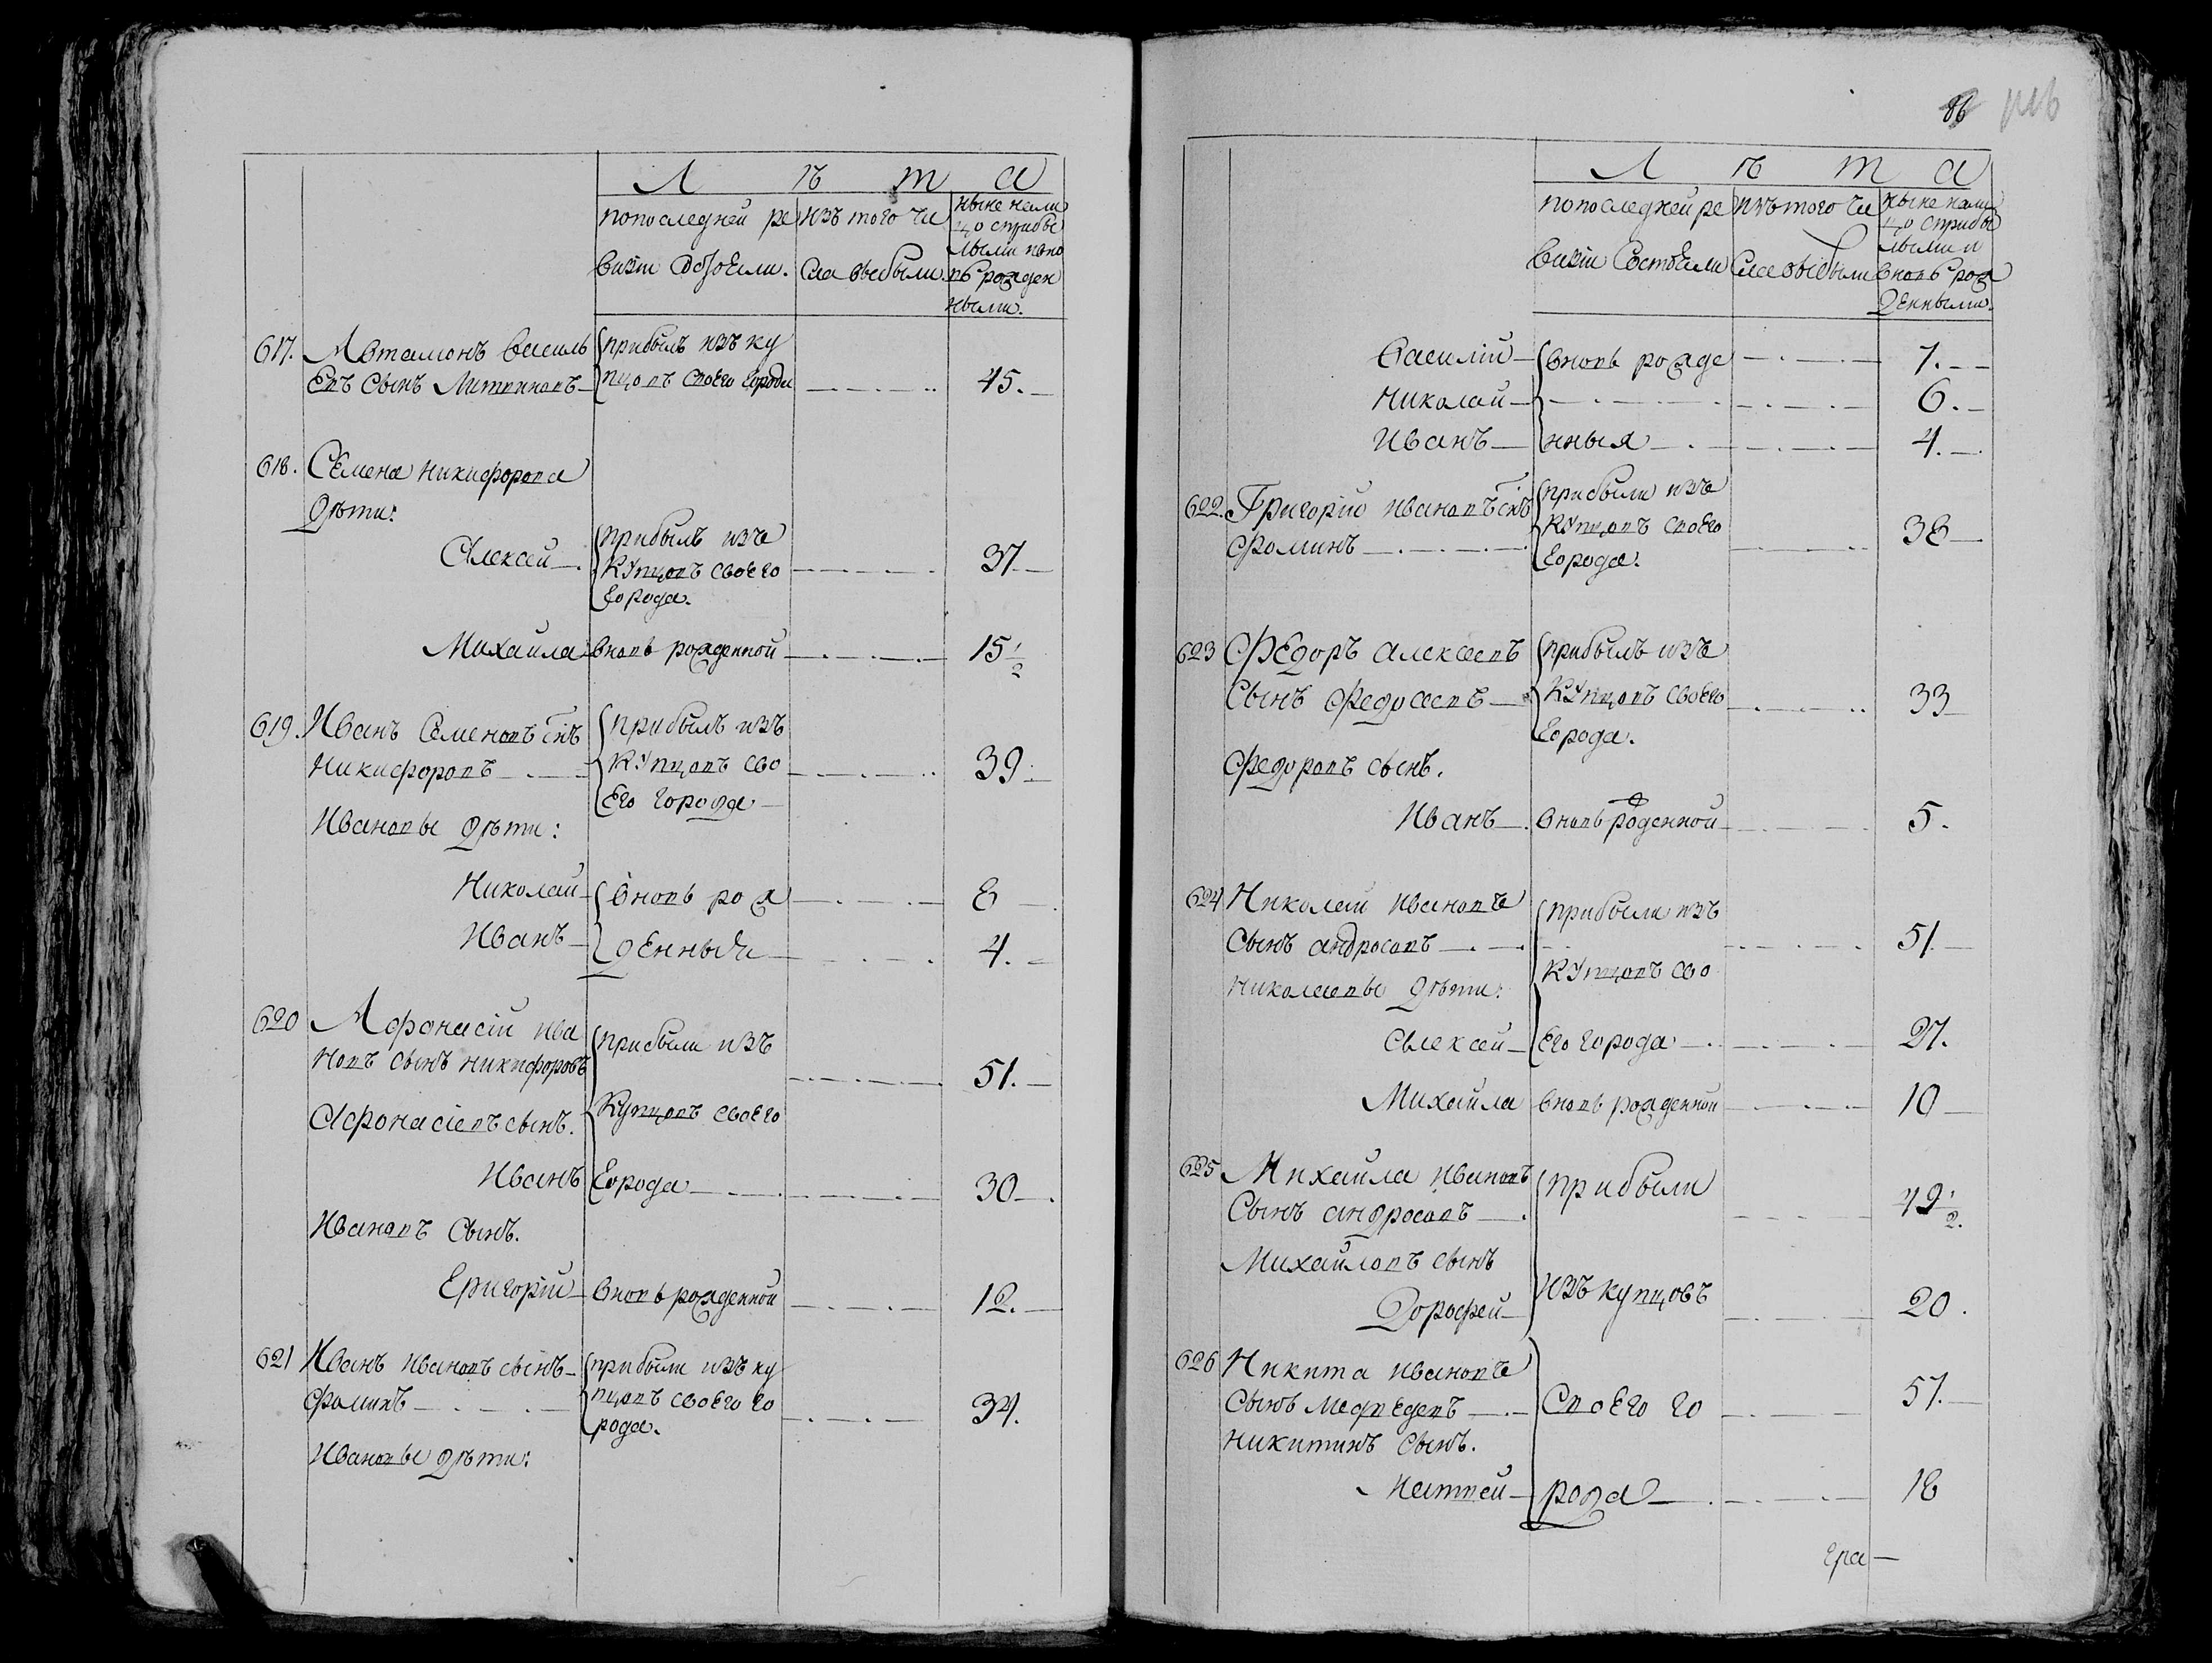 Л ѣ т а
попоследней ре
визіи
изъ того чи
сла выбыли
ныне нали
цо сприбы
лыми
вь рожден
ными.
617. Автамонъ василь
евъ сынъ Литвиновъ
прибылъ изъ ку
пцовъ своего города
45.
618. Семена никифорова
дѣти:
Алексей
прибылъ изъ
купцовъ своего
города.
37.
Михайла вновь рожденной 15 1/2
619. Иванъ Семеновъ снъ
Никифоровъ
прибылъ изъ
купцовъ сво
его города
39
Ивановы дѣти:
Николай вновь рож 8
Иванъ денныя 4.
620 Афонасіи ива
новъ сынъ никифоровъ
прибыли изъ
51.
Афонасіевъ сынъ. купцовъ своего
Иванъ города 30
Ивановъ Сынъ.
Григорій вновь рожденной 12.
621 Иванъ ивановъ сынъ
Фоминъ
прибыли изъ ку
пцовъ своего го
рода.
34.
Ивановы дѣти:
86
Л ѣ т а
попоследней ре
визіи Состоели
изъ того чи
сла выбыли
ныне нали
цо сприбы
лыми и
вновь рож
денными.
Василій вновь рожде 7.
Николай 6.
Иванъ нныя 4.
622. Григорій ивановъ снъ
Фоминъ
прибыли изъ
купцовъ своего
города.
38
623 Федоръ алексеевъ
Сынъ Федосеевъ
прибылъ изъ
купцовъ своего
города.
33
Федоровъ сынъ.
Иванъ вновь рожденной 5.
624 Николай ивановъ
Сынъ андросовъ
прибыли изъ
51.
Николаевы дѣти: купцовъ сво
Алексей его города 27.
Михайла вновь рожденной 10
625 Михайла ивановъ
Сынъ андросовъ
прибыли
49 1/2.
Михайловъ сынъ
Дорофей изъ купцовъ 20.
626 Никита ивановъ
Сынъ медведевъ
своего го
57.
никитинъ Сынъ.
Матвей рода 18
гра